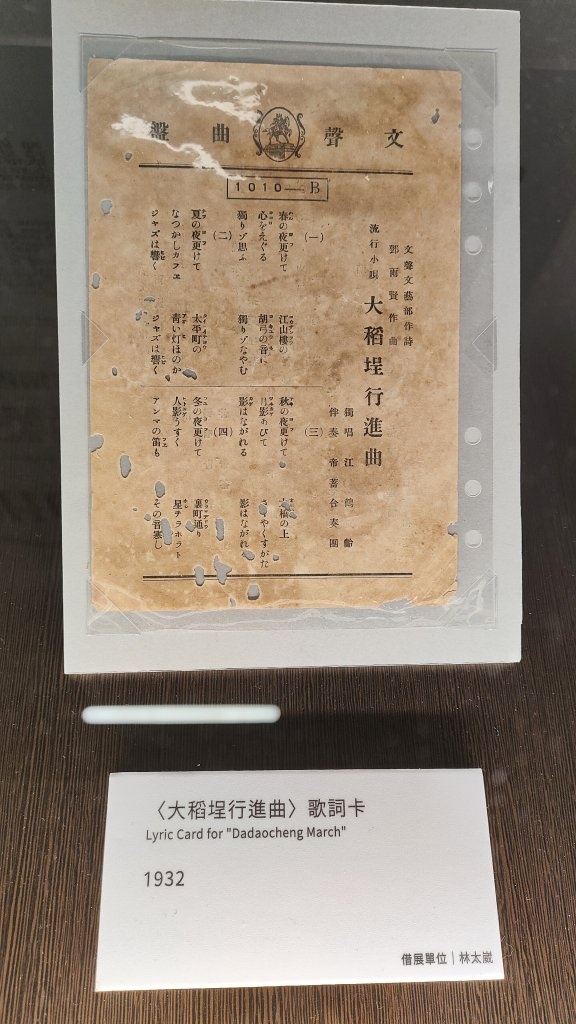 文聲曲盤
1010—B
文聲文藝部作詩
鄧雨賢作曲
流行小唄 大稻埕行進曲
獨唱 江鶴齡
伴奏 帝蓄合奏團
(一)
春の夜更けて 江山樓の
心をえぐる 胡弓の音に
獨りゾ思ふ 獨りゾなやむ
(二)
夏の夜更けて 太平町の
なつかしカフエ 青い灯ほのか
ジャズは響く ジャズは響く
(三)
秋の夜更けて 橋の上
月影あびて やくすがた
影はながれる 影はながれ
(四)
冬の夜更けて 裏町通り
人影うすく 星チラホラト
アンマの笛も その音寒し
〈大稻埕行進曲〉歌詞卡
Lyric Card for "Dadaocheng March"
1932
借展單位｜林太崴